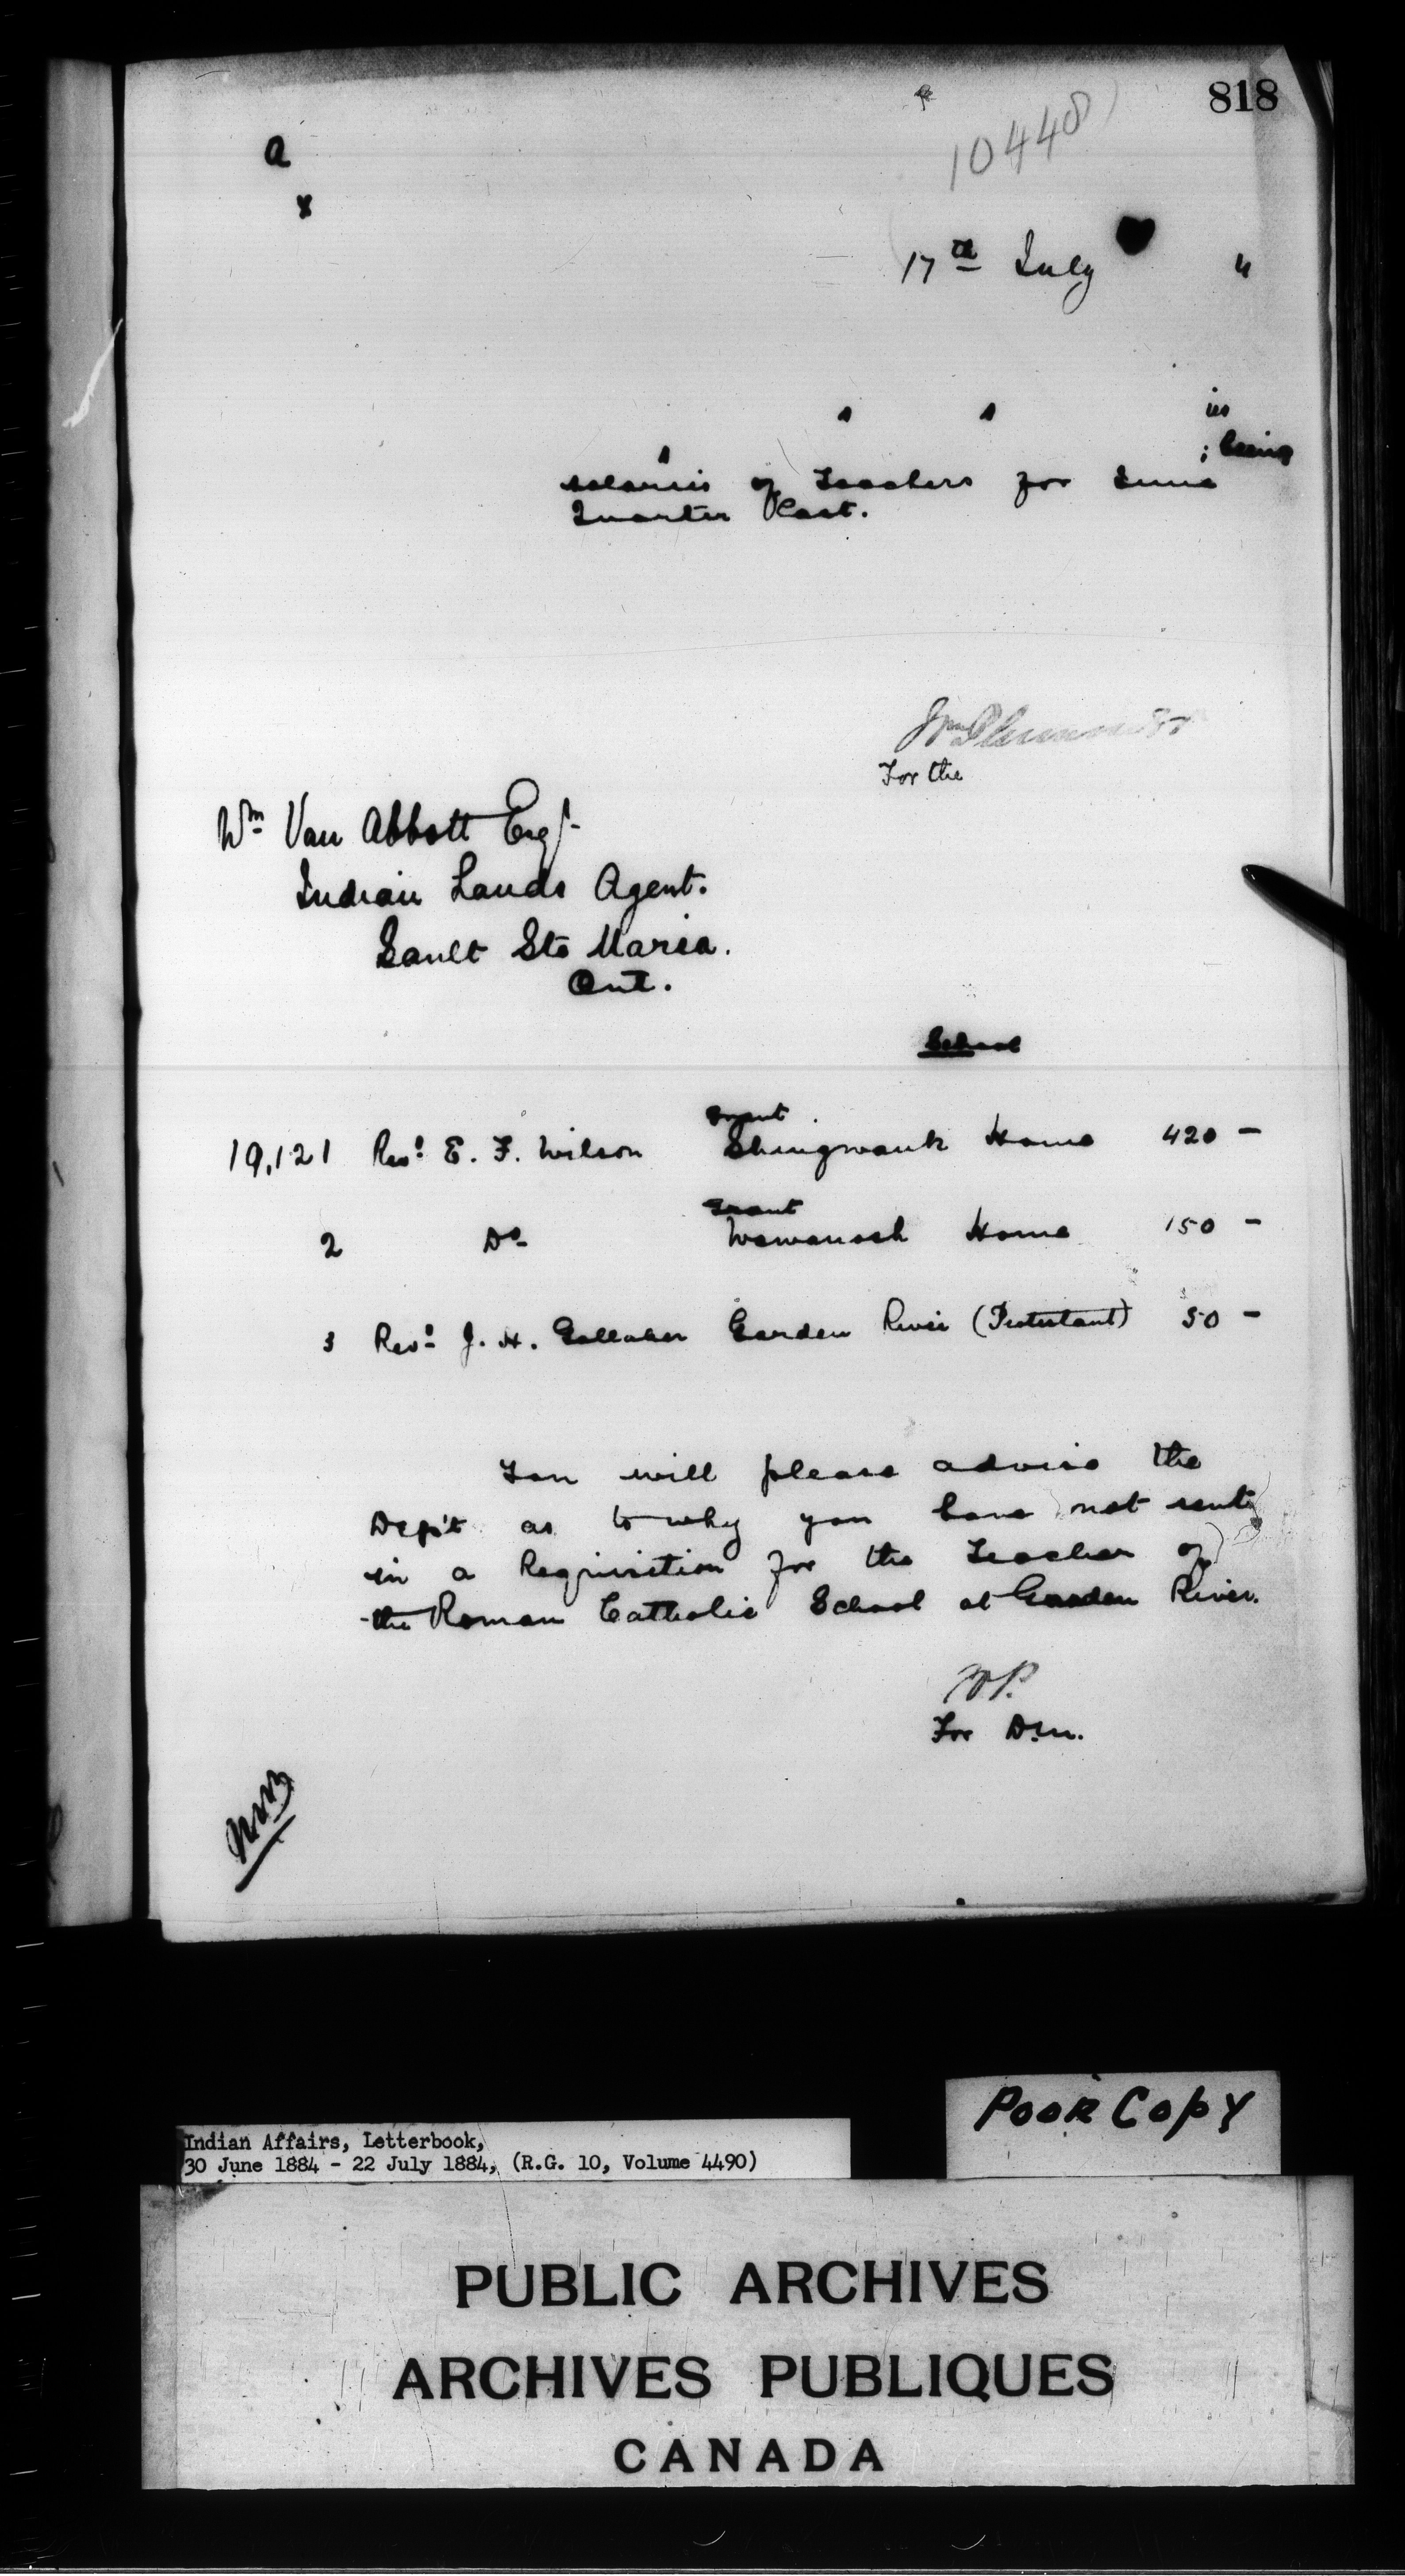 818
10448
a
x
17th July 4
s s ies
s ; being
salaries of Teachers for June
Quarter last.
Wm Plummer
For the
Wm Van Abbott Esqr.
Indian Lands Agent.
Sault Ste Marie.
Ont.
School
Grant
19,121 Revd. E. F. Wilson Shingwauk Home 420 -
Grant
2 Do Wawanosh Home 150 -
3 Revd. J. H. Gallaher Garden River (Protestant) 50 -
You will please advise the
Dep't as to why you have not sent
in a Requisition for the Teacher of
the Roman Catholic School at Garden River.
W.P.
For D.M.
Poor Copy
Indian Affairs, Letterbook,
30 June 1884 - 22 July 1884, (R.G. 10, Volume 4490)
PUBLIC ARCHIVES
ARCHIVES PUBLIQUES
CANADA